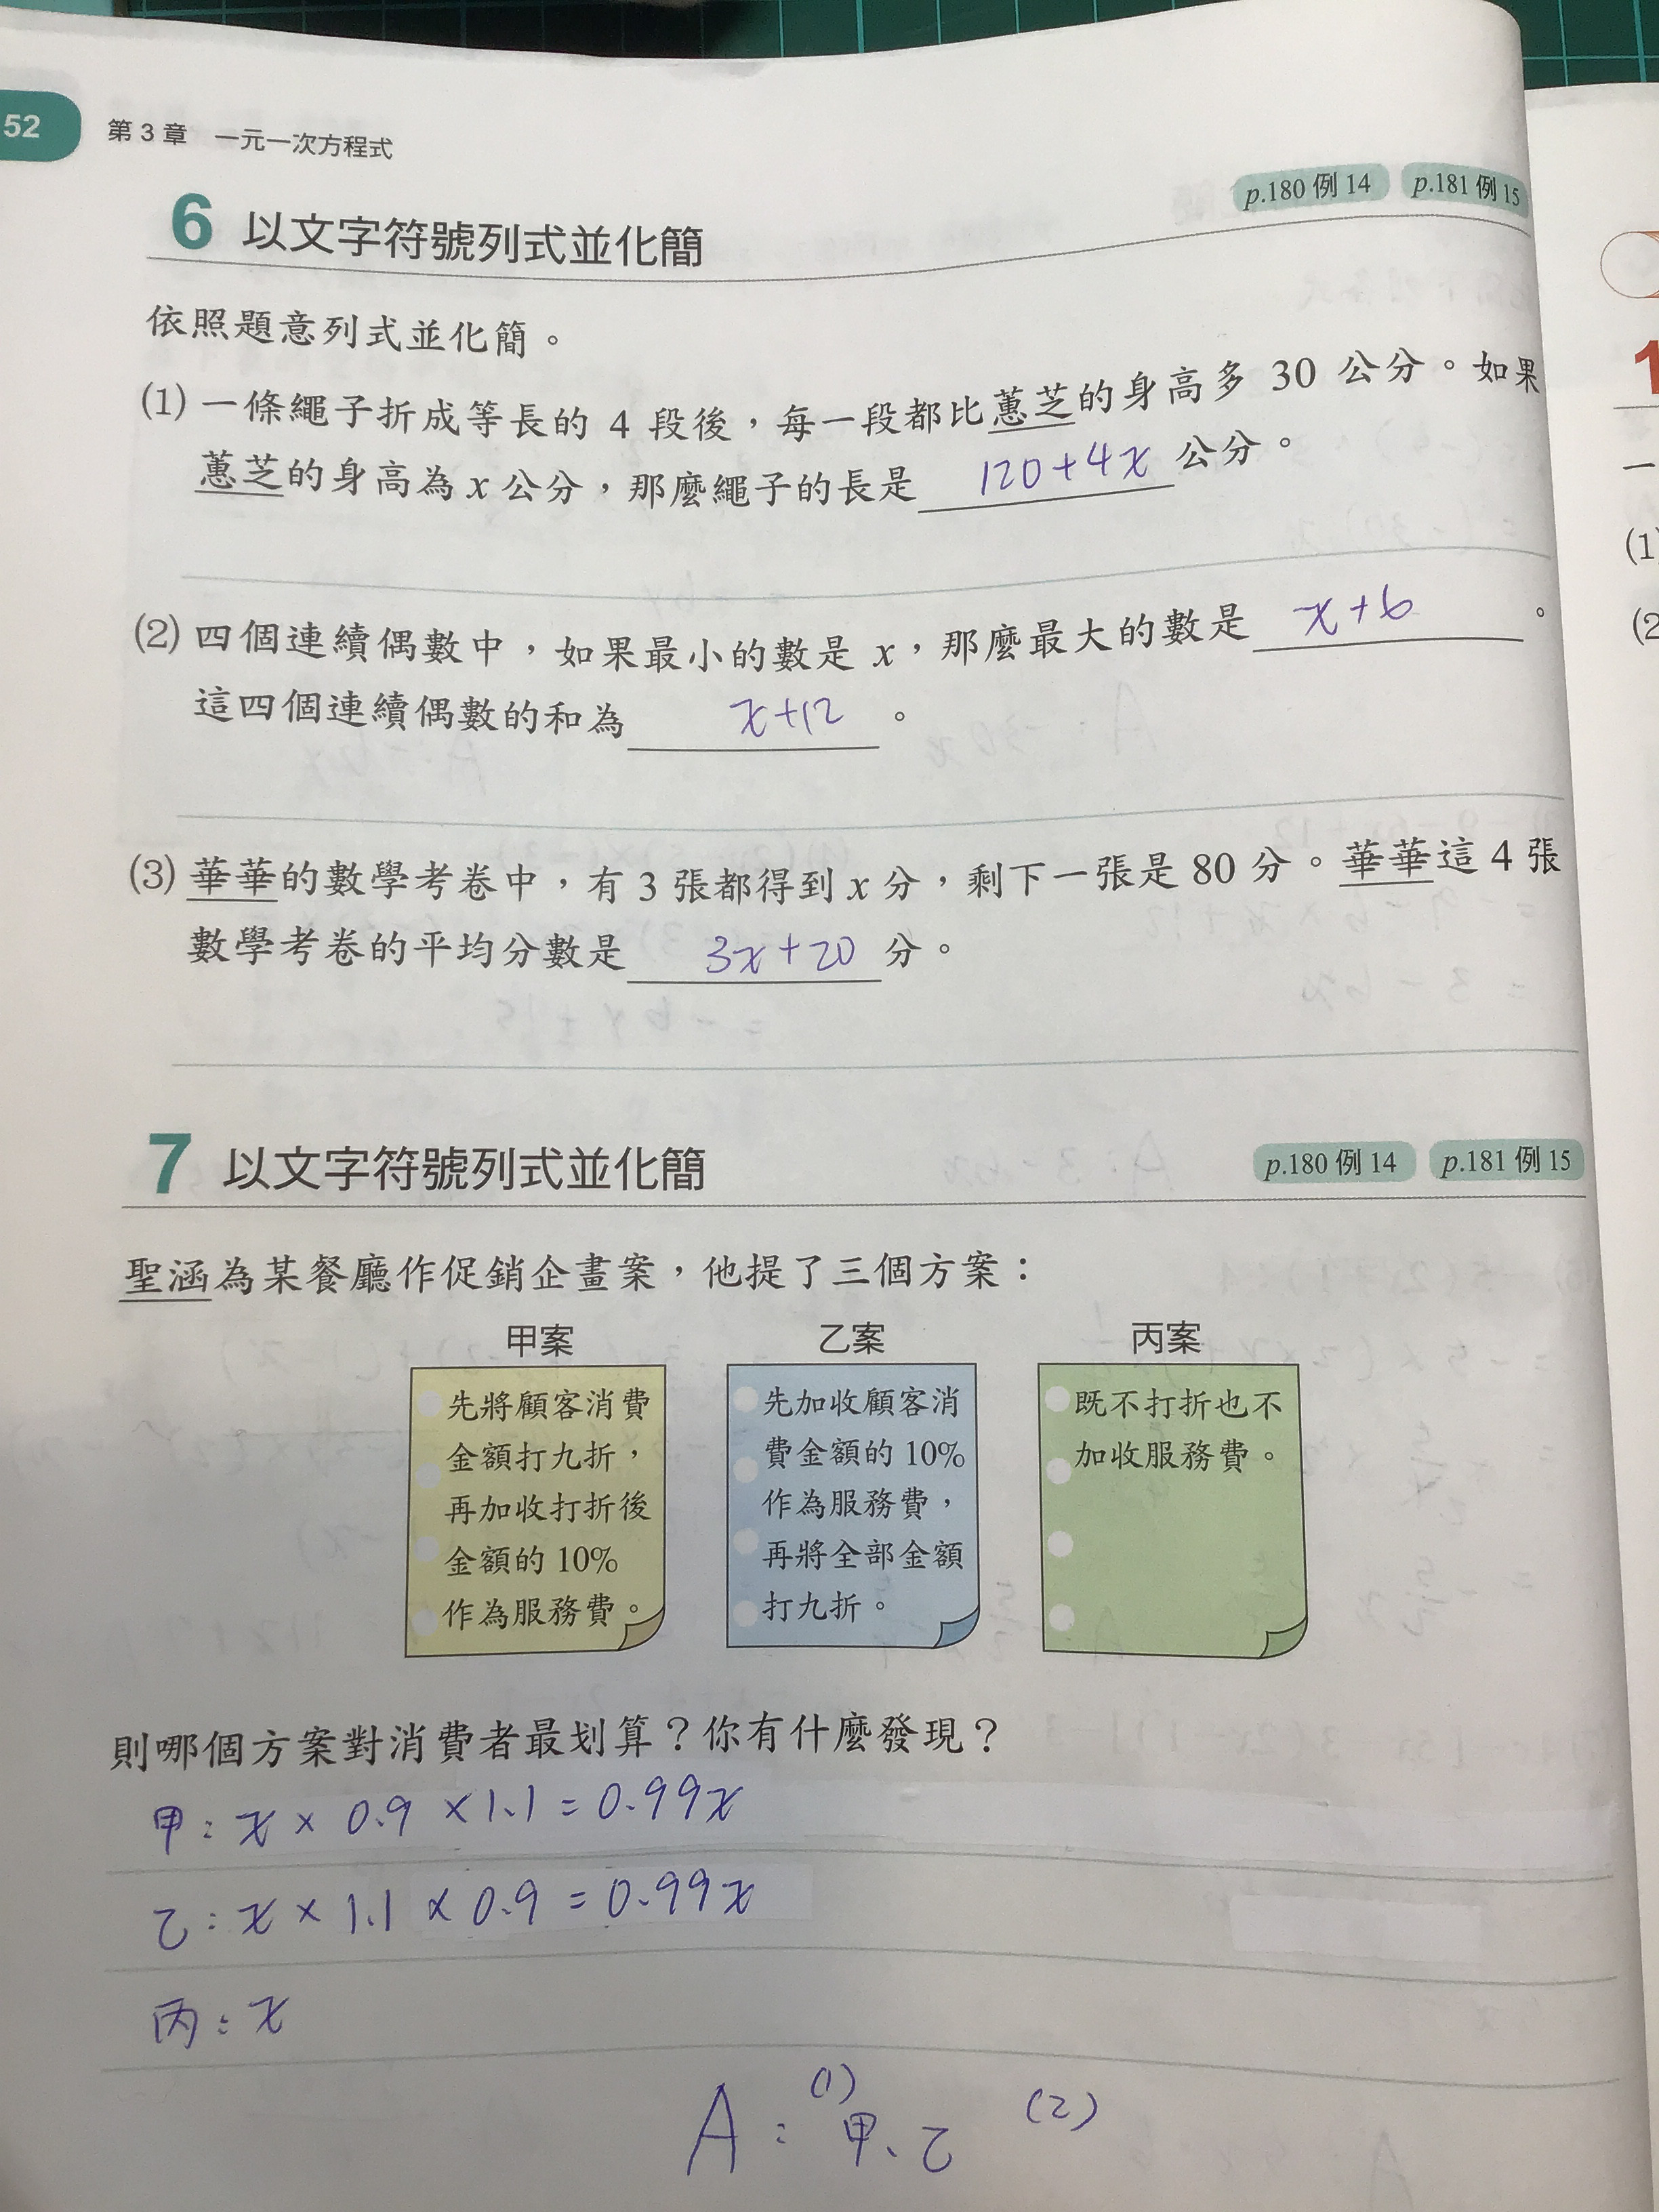 52 第 3 章 一元一次方程式
6 以文字符號列式並化簡 p.180 例 14 p.181 例 15
依照題意列式並化簡。
(1) 一條繩子折成等長的 4 段後，每一段都比蕙芝的身高多 30 公分。如果
蕙芝的身高為 x 公分，那麼繩子的長是 120+4x 公分。
(2) 四個連續偶數中，如果最小的數是 x，那麼最大的數是 x+6 。
這四個連續偶數的和為 x+12 。
(3) 華華的數學考卷中，有 3 張都得到 x 分，剩下一張是 80 分。華華這 4 張
數學考卷的平均分數是 3x+20 分。
7 以文字符號列式並化簡 p.180 例 14 p.181 例 15
聖涵為某餐廳作促銷企畫案，他提了三個方案：
甲案
先將顧客消費
金額打九折，
再加收打折後
金額的 10%
作為服務費。
乙案
先加收顧客消
費金額的 10%
作為服務費，
再將全部金額
打九折。
丙案
既不打折也不
加收服務費。
則哪個方案對消費者最划算？你有什麼發現？
甲：x × 0.9 × 1.1 = 0.99x
乙：x × 1.1 × 0.9 = 0.99x
丙：x
A：(1) 甲、乙 (2)
1
一
(1)
(2